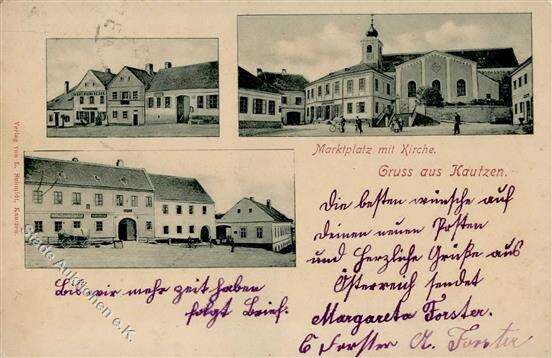 Marktplatz mit Kirche.
Gruss aus Kautzen.
Verlag von L. Schmidt, Kautzen.
Die besten wünsche auf
deinen neuen Posten
und herzliche Grüße aus
Österreich sendet
Margareta Forster.
C Forster A. Forster
Bis wir mehr zeit haben
folgt Brief.
Stade Auktionen e.K.